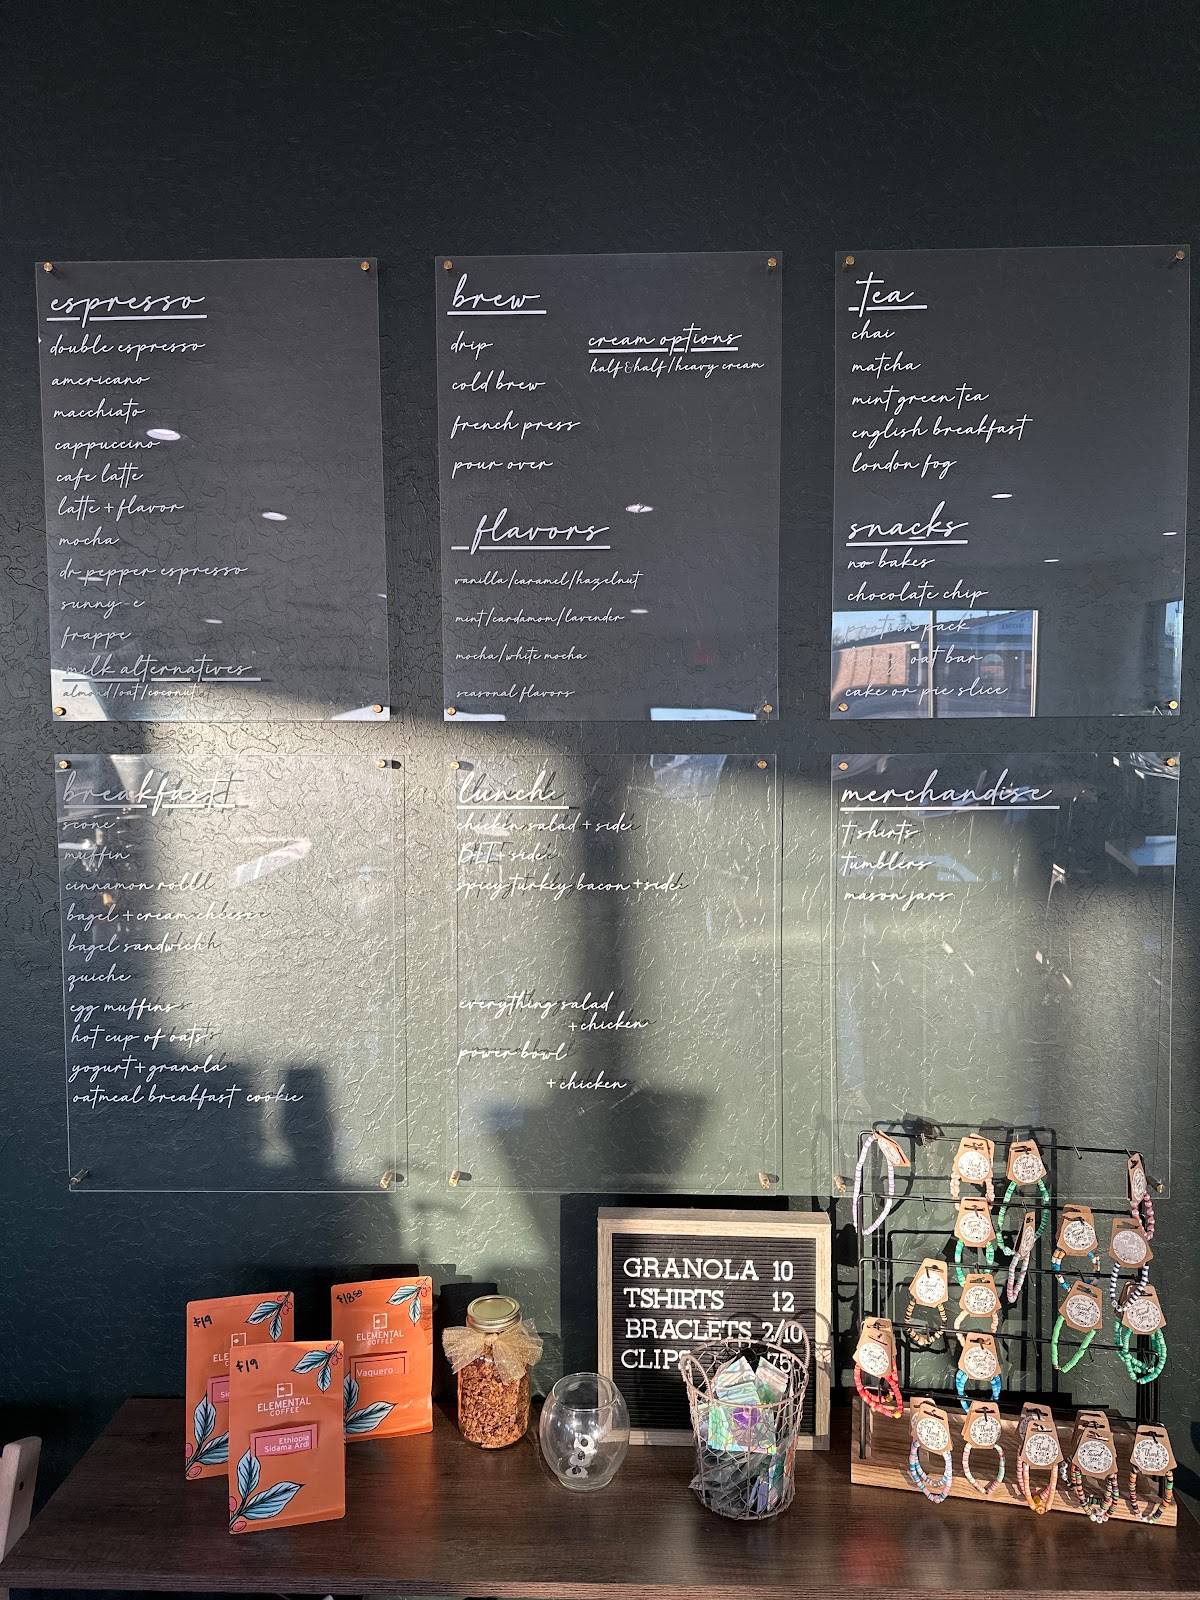 espresso
double espresso
americano
macchiato
cappuccino
cafe latte
latte + flavor
mocha
dr pepper espresso
sunny-e
frappe
milk alternatives
almond/oat/coconut
brew
drip
cold brew
french press
pour over
cream options
half & half/heavy cream
flavors
vanilla/caramel/hazelnut
mint/cardamom/lavender
mocha/white mocha
seasonal flavors
tea
chai
matcha
mint green tea
english breakfast
london fog
snacks
no bakes
chocolate chip
protein pack
oat bar
cake or pie slice
breakfast
scone
muffin
cinnamon roll
bagel + cream cheese
bagel sandwich
quiche
egg muffins
hot cup of oats
yogurt + granola
oatmeal breakfast cookie
lunch
chicken salad + side
BLT + side
spicy turkey bacon + side
everything salad
+ chicken
power bowl
+ chicken
merchandise
t shirts
tumblers
mason jars
GRANOLA 10
TSHIRTS 12
BRACLETS 2/10
CLIPS 75
$19
$18.50
ELEMENTAL
COFFEE
Vaquero
$19
ELEMENTAL
COFFEE
Ethiopia
Sidama Ardi